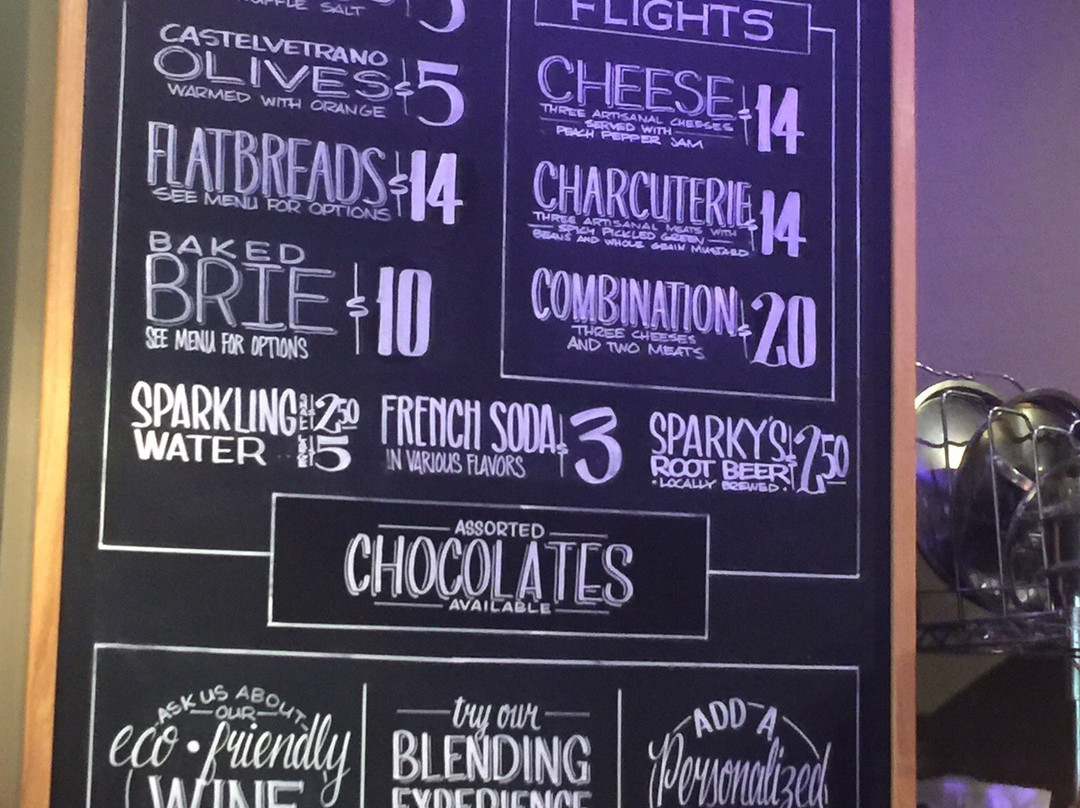 TRUFFLE SALT 5
CASTELVETRANO
OLIVES $5
WARMED WITH ORANGE
FLATBREADS $14
SEE MENU FOR OPTIONS
BAKED
BRIE $10
SEE MENU FOR OPTIONS
FLIGHTS
CHEESE $14
THREE ARTISANAL CHEESES
SERVED WITH
PEACH PEPPER JAM
CHARCUTERIE $14
THREE ARTISANAL MEATS WITH
SPICY PICKLED GREEN
BEANS AND WHOLE GRAIN MUSTARD
COMBINATION $20
THREE CHEESES
AND TWO MEATS
SPARKLING $2.50
WATER $5
FRENCH SODA $3
IN VARIOUS FLAVORS
SPARKY'S $2.50
ROOT BEER
• LOCALLY BREWED •
ASSORTED
CHOCOLATES
AVAILABLE
ASK US ABOUT
OUR
eco • friendly
WINE
try our
BLENDING
EXPERIENCE
ADD A
Personalized